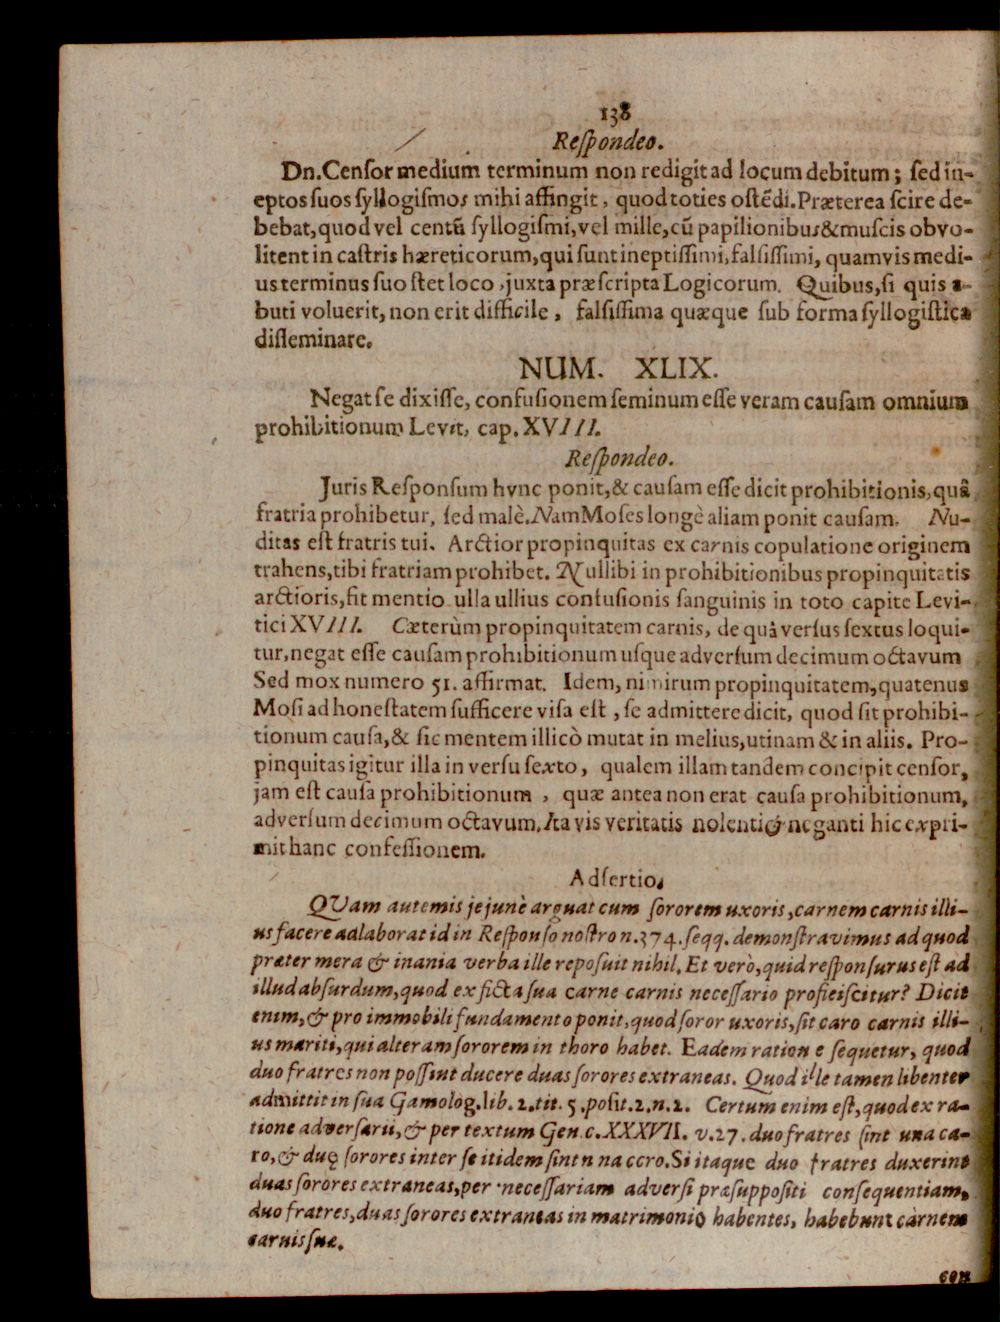 138
Reſpondeo.
Dn.Cenſor medium terminum non redigit ad locum debitum; ſed in-
eptos ſuos ſyllogiſmos mihi affingit, quod toties oſtẽdi.Præterea ſcire de-
bebat,quod vel centũ ſyllogiſmi,vel mille,cũ papilionibus&muſcis obvo-
litent in caſtris hæreticorum,qui ſunt ineptiſſimi,falſiſſimi, quamvis medi-
us terminus ſuo ſtet loco,juxta præſcripta Logicorum. Quibus,ſi quis a-
buti voluerit, non erit difficile, falſiſſima quæque ſub forma ſyllogiſtica
diſſeminare.
NUM. XLIX.
Negat ſe dixiſſe, confuſionem ſeminum eſſe veram cauſam omnium
prohibitionum Levit, cap. XVIII.
Reſpondeo.
Juris Reſponſum hvnc ponit,& cauſam eſſe dicit prohibitionis,quâ
fratria prohibetur, ſed malè.Nam Moſes longè aliam ponit cauſam. Nu-
ditas eſt fratris tui. Arctior propinquitas ex carnis copulatione originem
trahens,tibi fratriam prohibet. Nullibi in prohibitionibus propinquitatis
arctioris,fit mentio ulla ullius confuſionis ſanguinis in toto capite Levi-
tici XVIII. Cæterùm propinquitatem carnis, de quâ verſus ſextus loqui-
tur,negat eſſe cauſam prohibitionum uſque adverſum decimum octavum
Sed mox numero 51. affirmat. Idem, nimirum propinquitatem,quatenus
Moſi ad honeſtatem ſufficere viſa eſt, ſe admittere dicit, quod ſit prohibi-
tionum cauſa,& ſic mentem illicò mutat in melius,utinam & in aliis. Pro-
pinquitas igitur illa in verſu ſexto, qualem illam tandem concipit cenſor,
jam eſt cauſa prohibitionum, quæ antea non erat cauſa prohibitionum,
adverſum decimum octavum.Ita vis veritatis nolenti& neganti hic expri-
mit hanc confeſſionem.
Adſertio.
QUam autem is jejunè arguat cum ſororem uxoris,carnem carnis illi-
us facere adlaborat id in Reſponſo noſtro n.374.ſeqq. demonſtravimus ad quod
præter mera & inania verba ille repoſuit nihil. Et verò,quid reſponſurus eſt ad
illud abſurdum,quod ex ficta ſua carne carnis neceſſario profieiſcitur? Dicit
enim,& pro immobili fundamento ponit,quod ſoror uxoris,ſit caro carnis illi-
us mariti,qui alteram ſororem in thoro habet. Eadem ration e ſequetur, quod
duo fratres non poſſint ducere duas ſorores extraneas. Quod ille tamen libenter
admittit in ſua Gamolog.lib. 2.tit. 5.poſit.2.n.2. Certum enim eſt,quod ex ra-
tione adverſarii,& per textum Gen.c.XXXVII. v.27. duo fratres ſint una ca-
ro,& duę ſorores inter ſe itidem ſint n na ccro.Si itaque duo fratres duxerint
duas ſorores extraneas,per neceſſariam adverſi præſuppoſiti conſequentiam,
duo fratres,duas ſorores extraneas in matrimonio habentes, habebunt càrnem
carnis ſuæ.